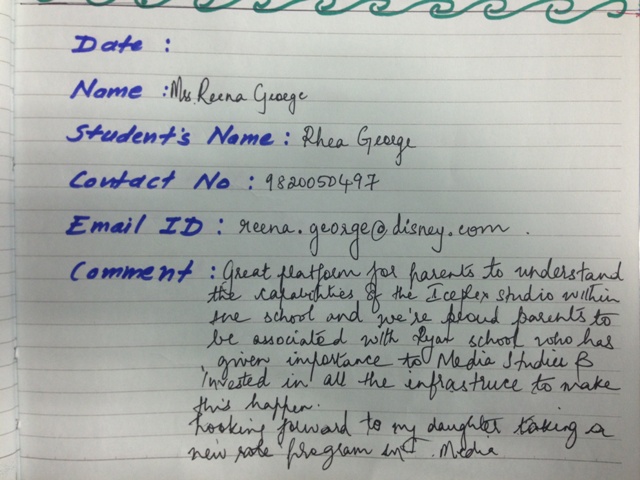 Date :
Name : Mrs. Reena George
Student's Name : Rhea George
Contact No : 9820050497
Email ID : reena.george@disney.com .
Comment : Great platform for parents to understand
the capabilities of the Iceplex studio within
the school and we're proud parents to
be associated with Ryan school who has
given importance to Media Studies &
invested in all the infrastruce to make
this happen.
Looking forward to my daughter taking a
new role program in Media